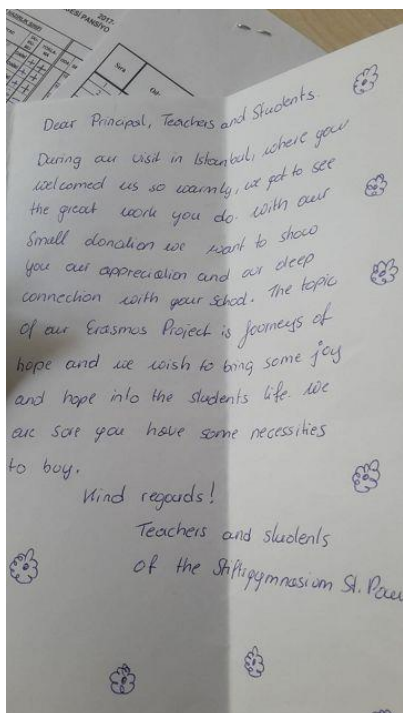 2017-
ESİ PANSİYO
Sıra
Dear Principal, Teachers and Students.
During our visit in Istanbul, where you
welcomed us so warmly, we got to see
the great work you do. With our
small donation we want to show
you our appreciation and our deep
connection with your school. The topic
of our Erasmus Project is Journeys of
hope and we wish to bring some joy
and hope into the students life. We
are sure you have some necessities
to buy.
Kind regards!
Teachers and students
of the Stiftsgymnasium St. Pau